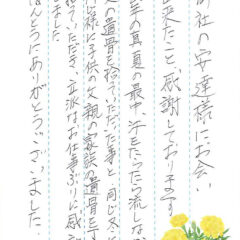 御社の安達様にお会い
出来たこと、感謝しております。
年の真夏の最中、汗をだらだら流しなが
の遺骨を捨っていただいた事と同じ冬に
様に子供の父親の家族の遺骨を
捨っていただき、立派なお仕事ぶりに感
ました。
ほんとうにありがとうございました。